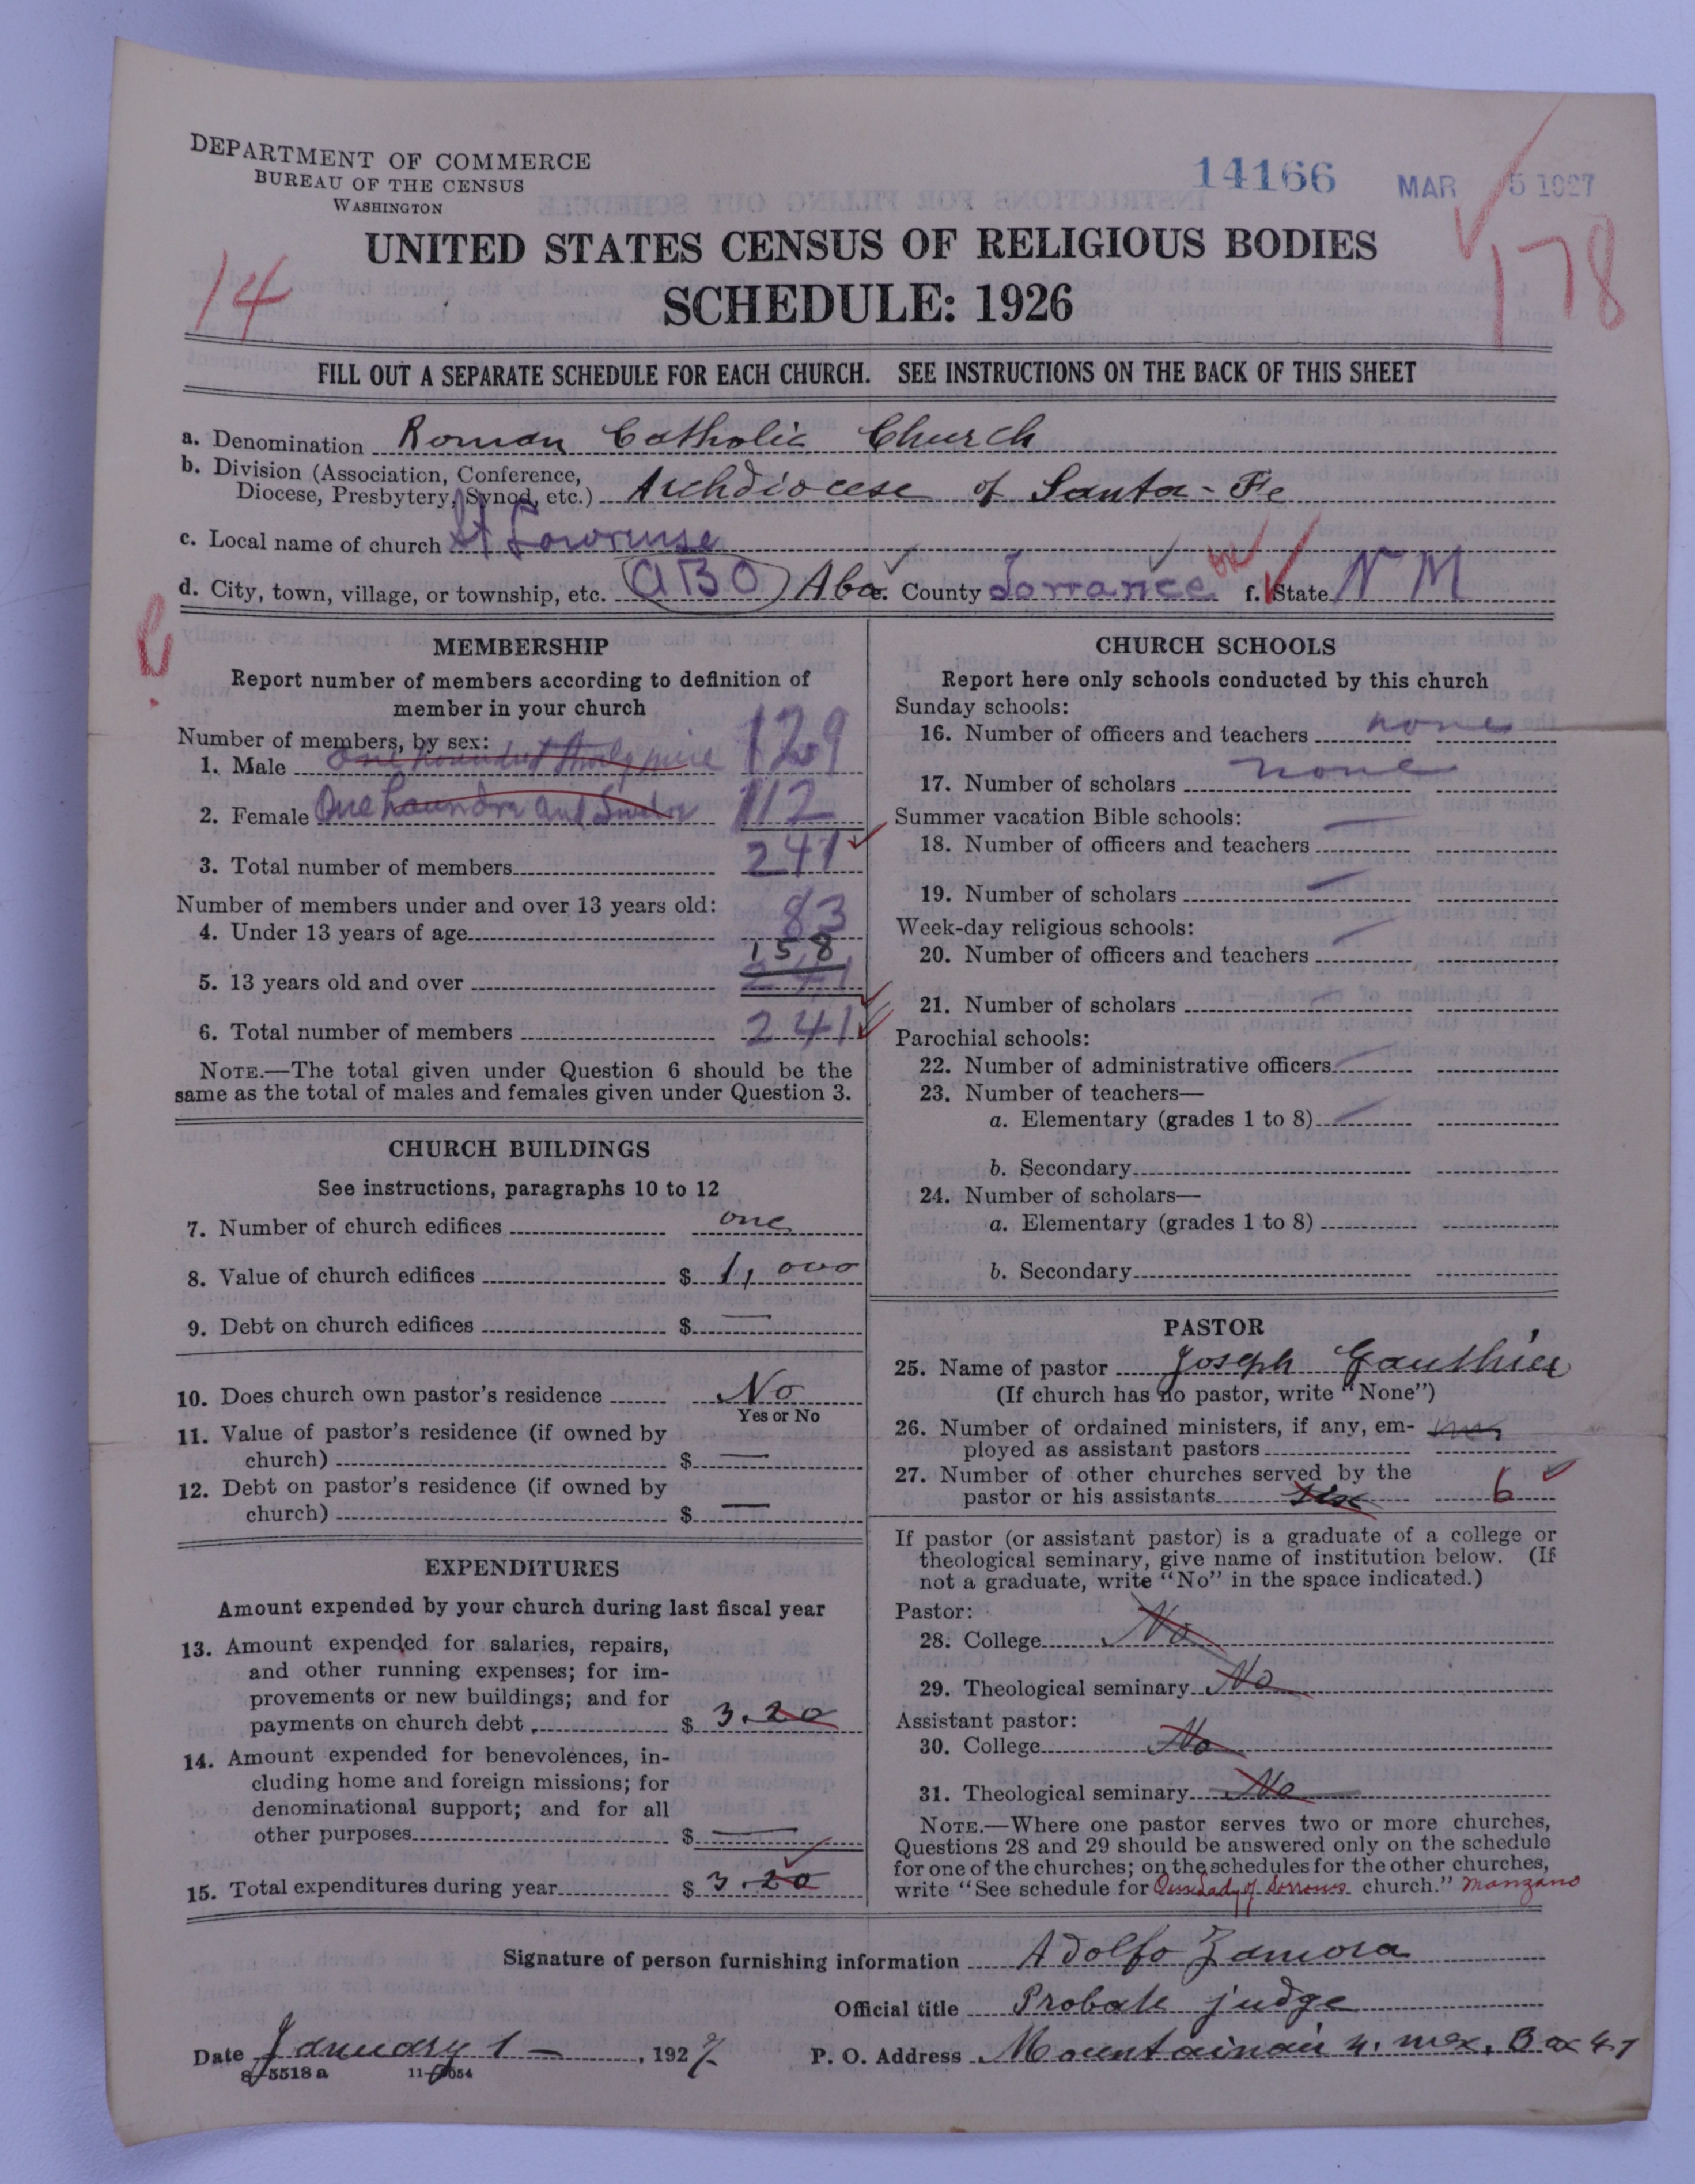 DEPARTMENT OF COMMERCE
BUREAU OF THE CENSUS
WASHINGTON
14166 MAR 5 1927
UNITED STATES CENSUS OF RELIGIOUS BODIES
14 178
SCHEDULE: 1926
FILL OUT A SEPARATE SCHEDULE FOR EACH CHURCH. SEE INSTRUCTIONS ON THE BACK OF THIS SHEET
a. Denomination Roman Catholic Church
b. Division (Association, Conference,
Diocese, Presbytery, Synod, etc.) Archdiocese of Santa-Fe
c. Local name of church St Lowrense
d. City, town, village, or township, etc. ABO Abo. County Torrance f. State N M
MEMBERSHIP
Report number of members according to definition of
member in your church
Number of members, by sex:
1. Male 129
2. Female One 112
3. Total number of members 241
Number of members under and over 13 years old:
4. Under 13 years of age 83
158
5. 13 years old and over 241
6. Total number of members 241
NOTE.—The total given under Question 6 should be the
same as the total of males and females given under Question 3.
CHURCH BUILDINGS
See instructions, paragraphs 10 to 12
7. Number of church edifices one
8. Value of church edifices $ 1,000
9. Debt on church edifices $ —
10. Does church own pastor's residence No
Yes or No
11. Value of pastor's residence (if owned by
church) $ —
12. Debt on pastor's residence (if owned by
church) $ —
EXPENDITURES
Amount expended by your church during last fiscal year
13. Amount expended for salaries, repairs,
and other running expenses; for im-
provements or new buildings; and for
payments on church debt $ 3.20
14. Amount expended for benevolences, in-
cluding home and foreign missions; for
denominational support; and for all
other purposes $ —
15. Total expenditures during year $ 3.20
CHURCH SCHOOLS
Report here only schools conducted by this church
Sunday schools:
16. Number of officers and teachers none
17. Number of scholars none
Summer vacation Bible schools:
18. Number of officers and teachers —
19. Number of scholars —
Week-day religious schools:
20. Number of officers and teachers —
21. Number of scholars —
Parochial schools:
22. Number of administrative officers —
23. Number of teachers—
a. Elementary (grades 1 to 8) —
b. Secondary
24. Number of scholars—
a. Elementary (grades 1 to 8)
b. Secondary
PASTOR
25. Name of pastor Joseph Gauthier
(If church has no pastor, write "None")
26. Number of ordained ministers, if any, em-
ployed as assistant pastors
27. Number of other churches served by the
pastor or his assistants six 6
If pastor (or assistant pastor) is a graduate of a college or
theological seminary, give name of institution below. (If
not a graduate, write "No" in the space indicated.)
Pastor:
28. College No
29. Theological seminary No
Assistant pastor:
30. College No
31. Theological seminary No
NOTE.—Where one pastor serves two or more churches,
Questions 28 and 29 should be answered only on the schedule
for one of the churches; on the schedules for the other churches,
write "See schedule for Our Lady of Sorrows church." Manzano
Signature of person furnishing information Adolfo Zamora
Official title Probate judge
Date January 1 —, 1927 P. O. Address Mountainair N. Mex. Box 47
8-5518a 11-9054